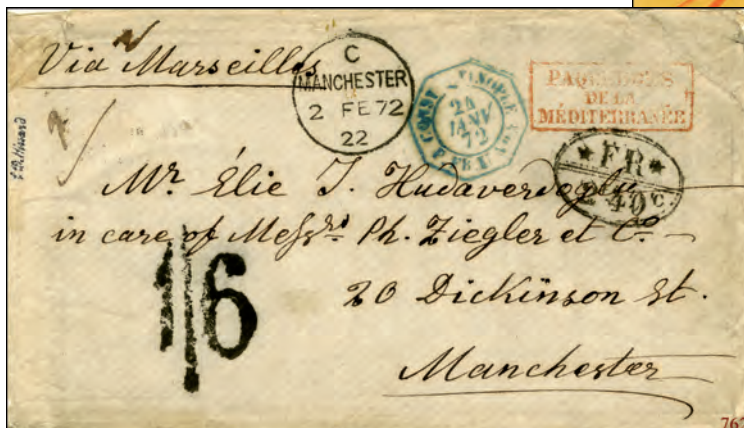 Via Marseilles
C
MANCHESTER
2 FE 72
22
CONST
24
JANV
72
PAQUEBOTS
DE LA
MÉDITERRANÉE
★ FR ★
2F 40c
Mr. Élie J. Hudaverdoglu
in care of Messrs. Ph. Ziegler et Co
20 Dickinson St.
Manchester
1/6